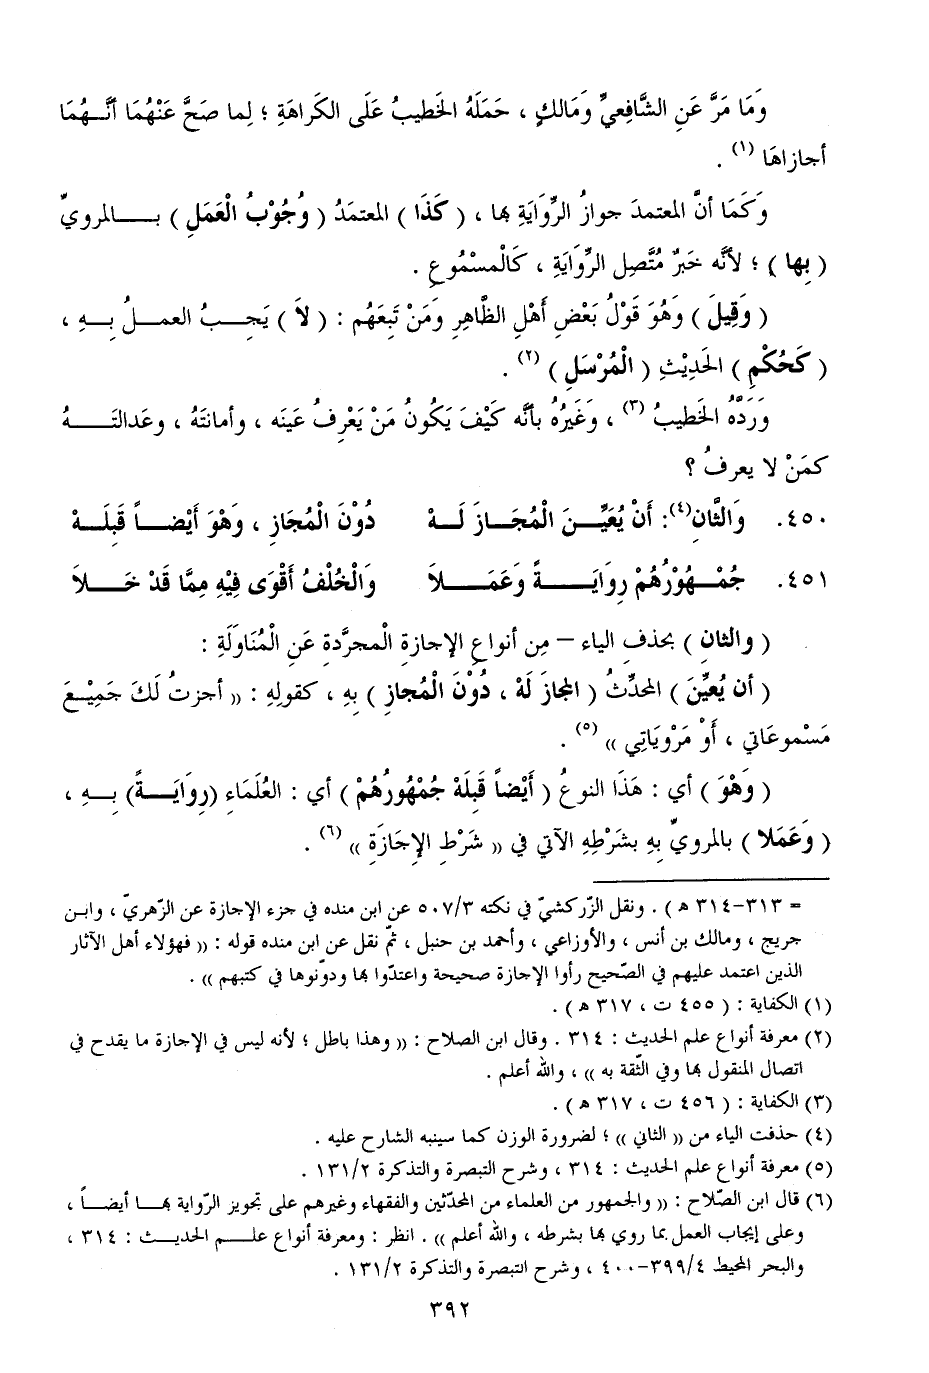 وَمَا مَرَّ عَنِ الشَّافِعيِّ وَمَالكٍ ، حَمَلَهُ الخَطيبُ عَلَى الكَراهَةِ ؛ لِما صَحَّ عَنْهُمَا أنَّــهُمَا
أجازاهَا (١) .
وَكَمَا أنَّ المعتمدَ جوازُ الرِّوَايَةِ بها ، ( كَذَا ) المعتمَدُ ( وُجُوْبُ الْعَمَلِ ) بــــالمرويِّ
( بِها ) ؛ لأنَّه خَبَرٌ مُتَّصِل الرِّوَايَةِ ، كَالْمسْمُوعِ .
( وَقِيلَ ) وَهُوَ قَوْلُ بَعْضِ أَهْلِ الظَّاهِرِ وَمَنْ تَبِعَهُم : ( لاَ ) يَجِــبُ العمــلُ بِــهِ ،
( كَحُكْمِ ) الحَدِيْثِ ( الْمُرْسَلِ ) (٢) .
وَرَدَّهُ الخَطيبُ (٣) ، وَغَيرُهُ بأنَّه كَيْفَ يَكُونُ مَنْ يَعْرِفُ عَينَه ، وأمانتَهُ ، وعَدالتَــــهُ
كمَنْ لا يعرفُ ؟
٤٥٠. وَالثَّانِ(٤): أَنْ يُعَيِّــنَ الْمُجَــازَ لَــهْ دُوْنَ الْمُجَازِ ، وَهْوَ أَيْضــاً قَبِلَــهْ
٤٥١. جُمْــهُوْرُهُمْ رِوَايَــــةً وَعَمَــــلاَ وَالْخُلْفُ أَقْوَى فِيْهِ مِمَّا قَدْ خَــلاَ
( والثانِ ) بحذفِ الياء – مِن أنواعِ الإجازةِ الْمجرَّدةِ عَنِ الْمُنَاوَلَةِ :
( أن يُعيِّنَ ) المحدِّثُ ( المجازَ لَهْ ، دُوْنَ الْمُجازِ ) بِهِ ، كقولِهِ : « أجزتُ لَكَ جَمِيْــعَ
مَسْموعَاتي ، أَوْ مَرْوِيَاتِي » (٥) .
( وَهْوَ ) أي : هَذَا النوعُ ( أَيْضاً قَبِلَهْ جُمْهُورُهُمْ ) أي : العُلَمَاءِ (رِوَايَــــةً) بِــهِ ،
( وَعَمَلا ) بالمرويِّ بِهِ بشَرْطِهِ الآتي في « شَرْطِ الإجَازَةِ » (٦) .
= ٣١٣-٣١٤ هـ ) . ونقل الزّركشيّ في نكته ٥٠٧/٣ عن ابن منده في جزء الإجازة عن الزّهريّ ، وابــن
جريج ، ومالك بن أنس ، والأوزاعي ، وأحمد بن حنبل ، ثمّ نقل عن ابن منده قوله : « فهؤلاء أهل الآثار
الذين اعتمد عليهم في الصّحيح رأوا الإجازة صحيحة واعتدّوا بها ودوّنوها في كتبهم » .
(١) الكفاية : ( ٤٥٥ ت ، ٣١٧ هـ ) .
(٢) معرفة أنواع علم الحديث : ٣١٤ . وقال ابن الصلاح : « وهذا باطل ؛ لأنه ليس في الإجازة ما يقدح في
اتصال المنقول بها وفي الثّقة به » ، والله أعلم .
(٣) الكفاية : ( ٤٥٦ ت ، ٣١٧ هـ ) .
(٤) حذفت الياء من « الثاني » ؛ لضرورة الوزن كما سينبه الشارح عليه .
(٥) معرفة أنواع علم الحديث : ٣١٤ ، وشرح التبصرة والتذكرة ١٣١/٢ .
(٦) قال ابن الصّلاح : « والجمهور من العلماء من المحدّثين والفقهاء وغيرهم على تجويز الرّواية بهــا أيضــاً ،
وعلى إيجاب العمل بما روي بها بشرطه ، والله أعلم » . انظر : ومعرفة أنواع علــم الحديــث : ٣١٤ ،
والبحر المحيط ٣٩٩/٤-٤٠٠ ، وشرح التبصرة والتذكرة ١٣١/٢ .
٣٩٢